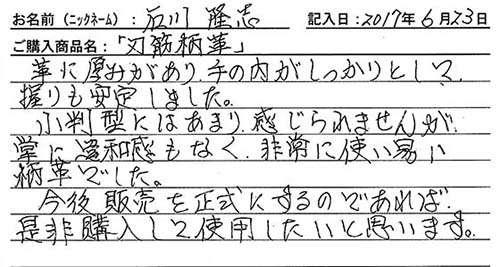 お名前（ニックネーム）：石川 隆志 記入日：2017年6月23日
ご購入商品名：「刃筋柄革」
革に厚みがあり、手の内がしっかりとして、
握りも安定しました。
小判型にはあまり、感じられませんが、
掌に違和感もなく、非常に使い易い
柄革でした。
今後 販売を正式にするのであれば、
是非購入して使用したいと思います。